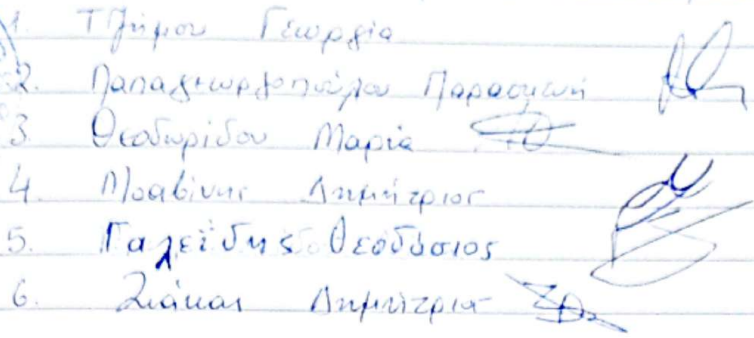 1. Τζήμου Γεωργία
2. Παπαγεωργοπούλου Παρασκευή
3. Θεοδωρίδου Μαρία
4. Δημήτριος
5. Γαλεΐδης Θεοδόσιος
6. Σιάκας Δημήτριος